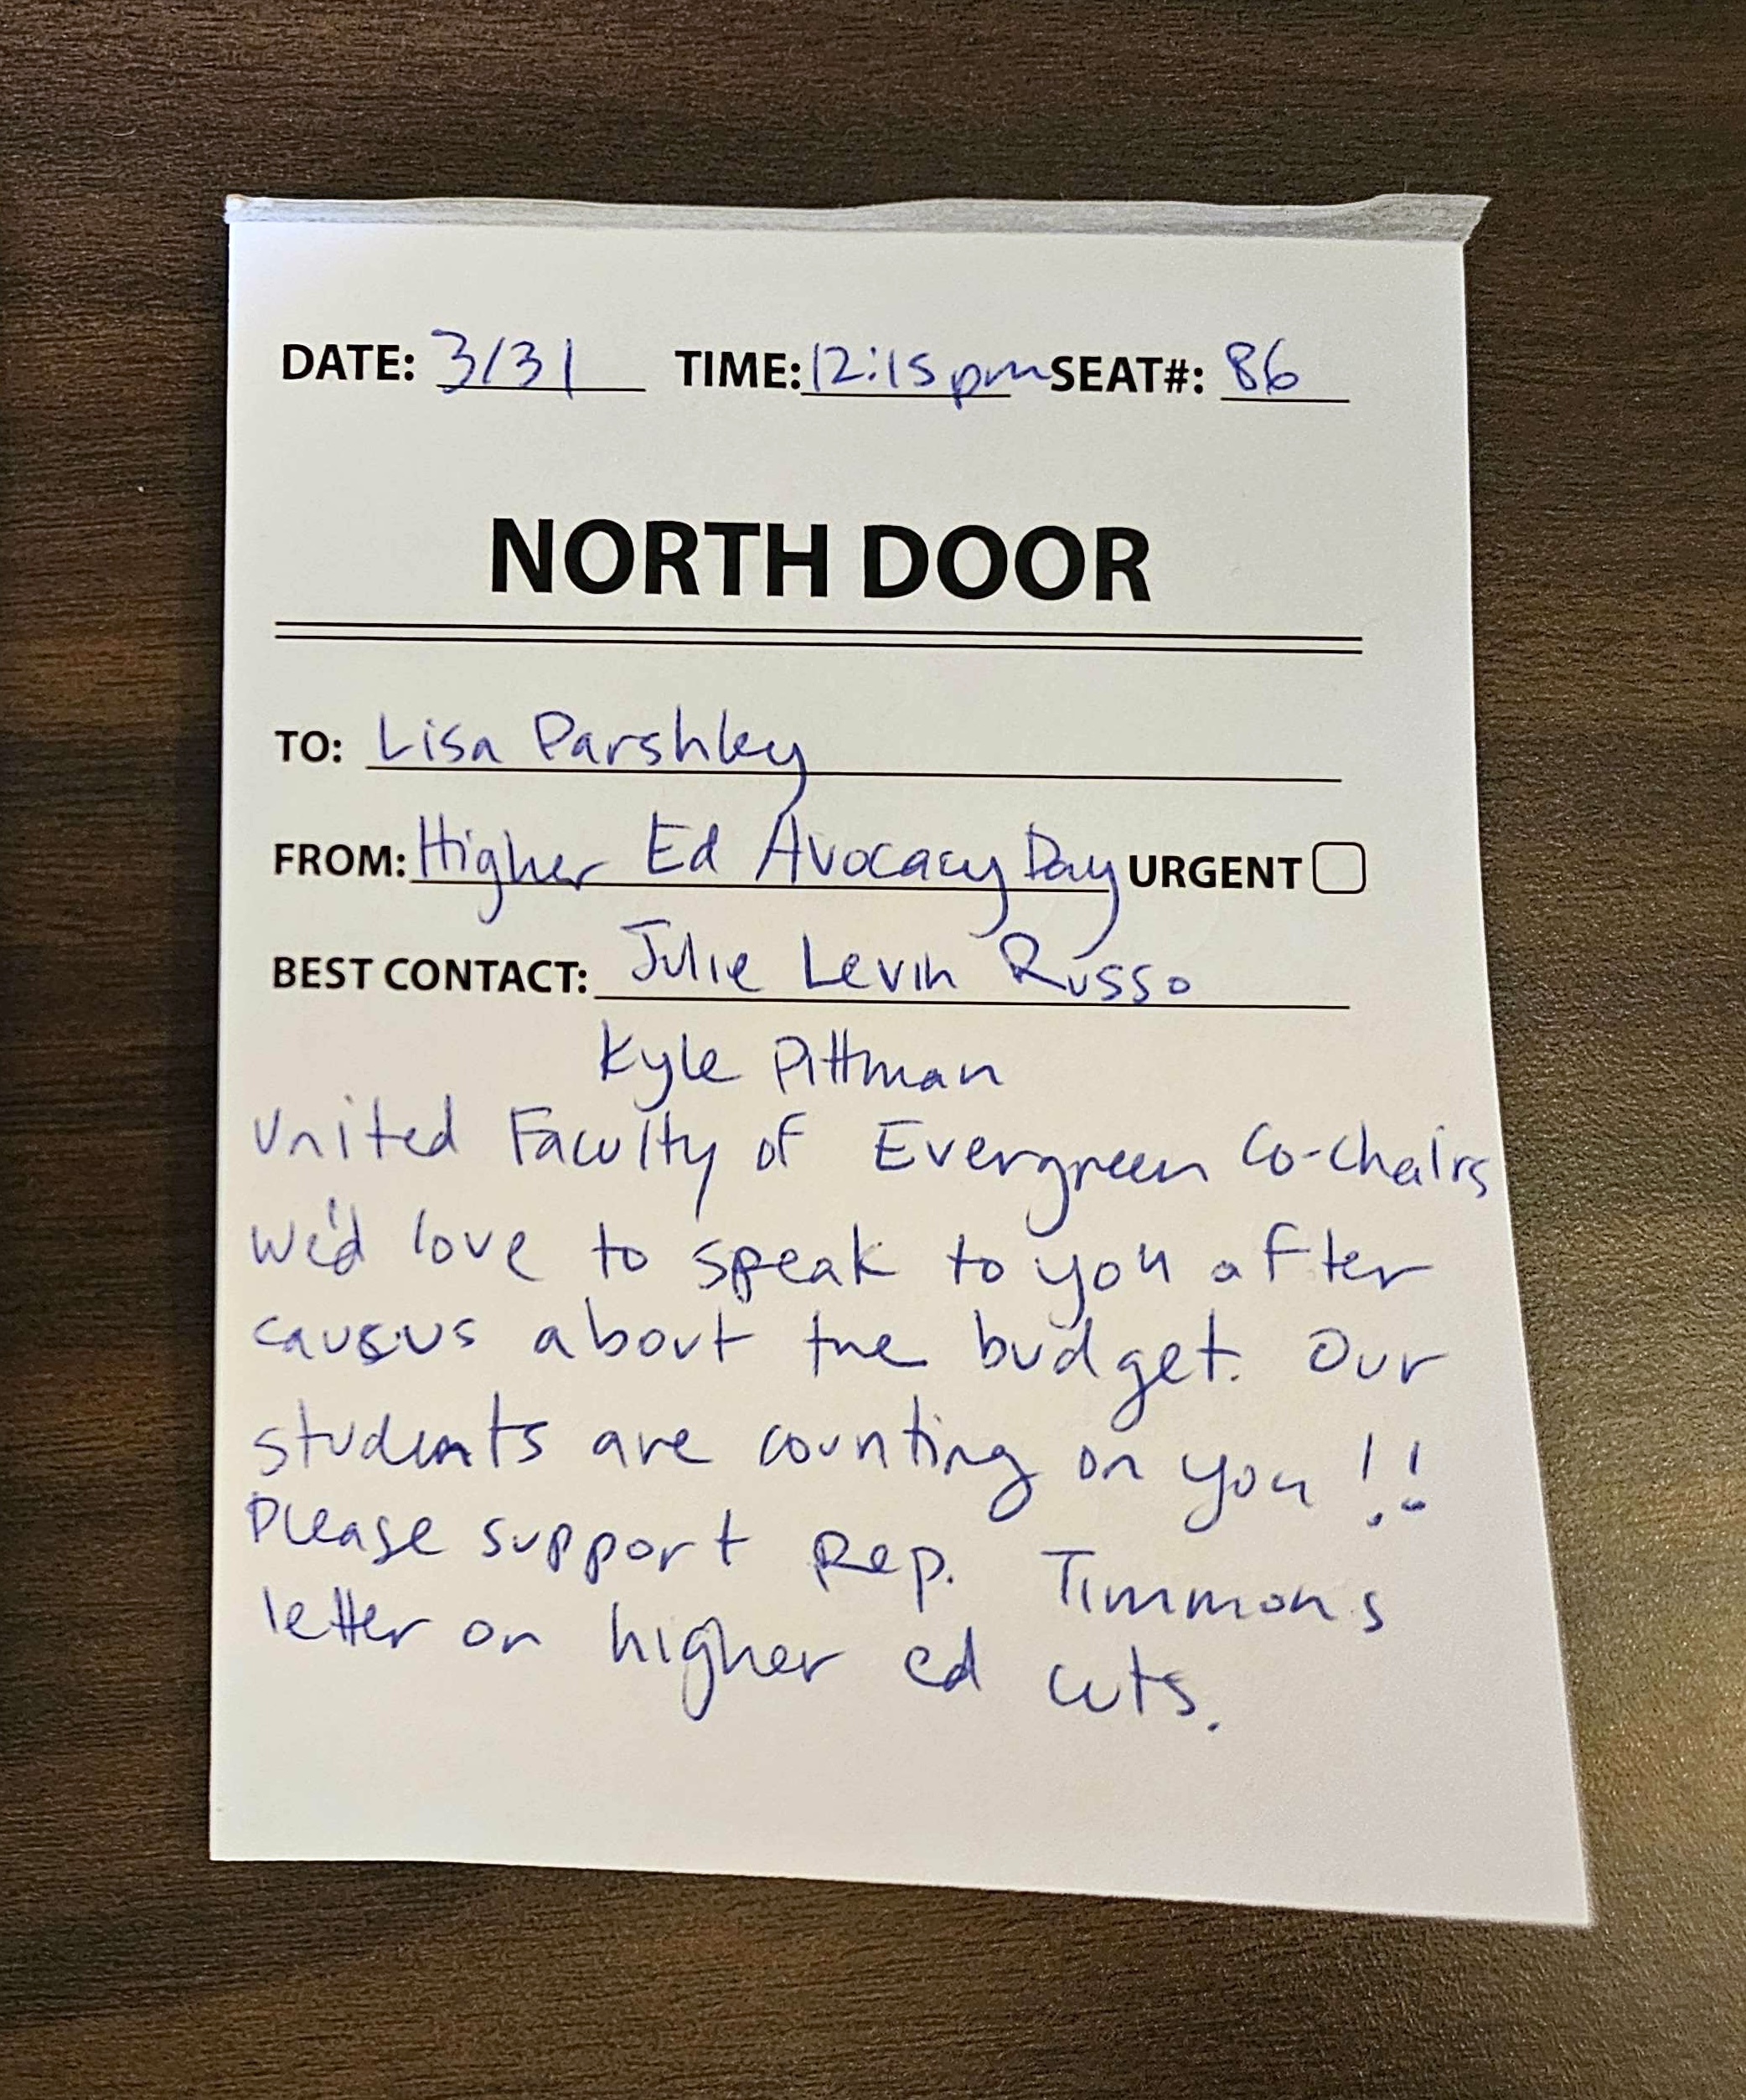 DATE: 3/31 TIME: 12:15pm SEAT#: 86
NORTH DOOR
TO: Lisa Parshley
FROM: Higher Ed Avocacy Day URGENT
BEST CONTACT: Julie Levin Russo
Kyle Pittman
United Faculty of Evergreen Co-chairs
We'd love to speak to you after
causus about the budget. Our
students are counting on you!!
Please support Rep. Timmons
letter on higher ed cuts.